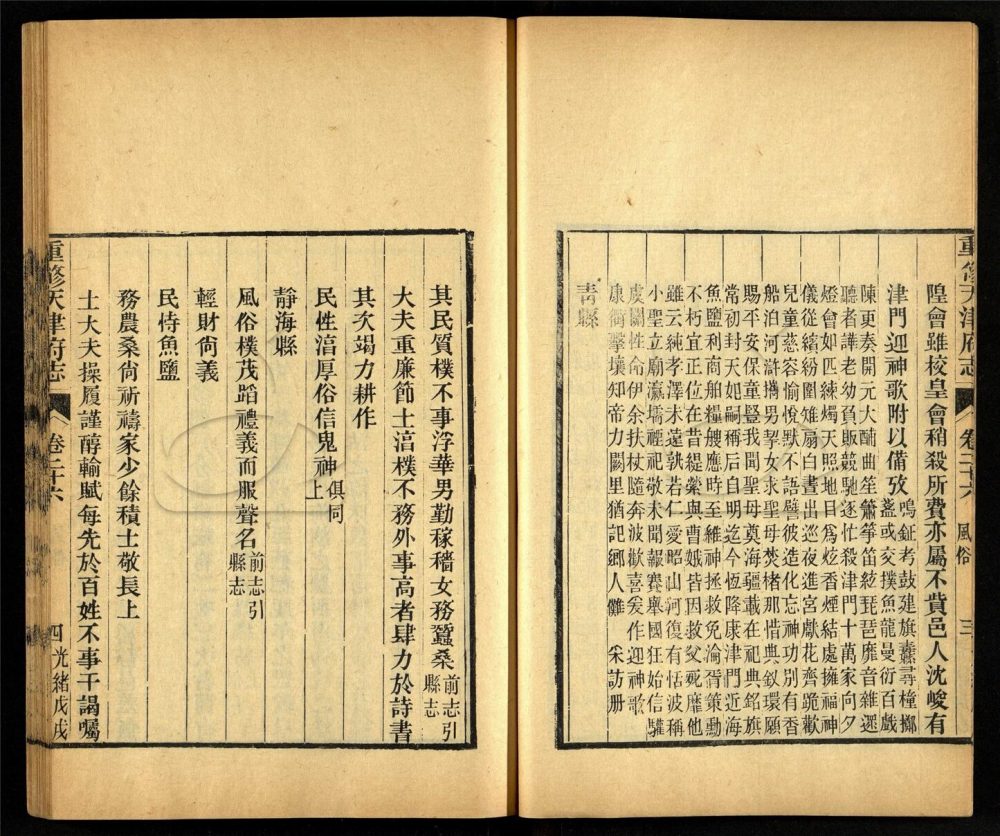 重修天津府志 卷二十六 風俗 三
隍會雖校皇會稍殺所費亦屬不貲邑人沈峻有
津門迎神歌附以備攷
鳴鉦考鼓建旗纛尋橦擲
盞或交撲魚龍曼衍百戲
陳更奏開元大酺曲笙簫箏笛絃琵琶靡音雜遝
聽者譁老幼負販競馳逐忙殺津門十萬家向夕
燈會如匹練燭天照地目爲炫香煙結處擁福神
儀從繽紛圍雉扇白晝出巡夜進宮獻花齊跪歡
兒童慈容愉悅默不語譬彼造化忘神功別有香
船泊河滸攜男挈女求聖母焚楮那惜典釵環願
賜平安保童豎我聞聖母奠海疆載在祀典銘旗
常初封天妃嗣稱后自明迄今恆降康津門近海
魚鹽利商舶糧艘應時至維神拯救免淪胥策勳
不朽宜正位在昔緹縈與曹娥皆因救父死靡他
雖云純孝澤未遠孰若仁愛昭山河復有恬波稱
小聖立廟瀛壖禋祀敬未聞報賽舉國狂始信驩
虞關性命伊余扶杖隨奔波歡喜爰作迎神歌
康衢擊壤知帝力闕里猶記鄉人儺 采訪册
青縣
其民質樸不事浮華男勤稼穡女務蠶桑
前志引
縣志
大夫重廉節士湻樸不務外事高者肆力於詩書
其次竭力耕作
民性湻厚俗信鬼神
俱同
上
靜海縣
風俗樸茂蹈禮義而服聲名
前志引
縣志
輕財尙義
民恃魚鹽
務農桑尙祈禱家少餘積士敬長上
士大夫操履謹醇輸賦每先於百姓不事干謁囑
重修天津府志 卷二十六 四 光緒戊戌